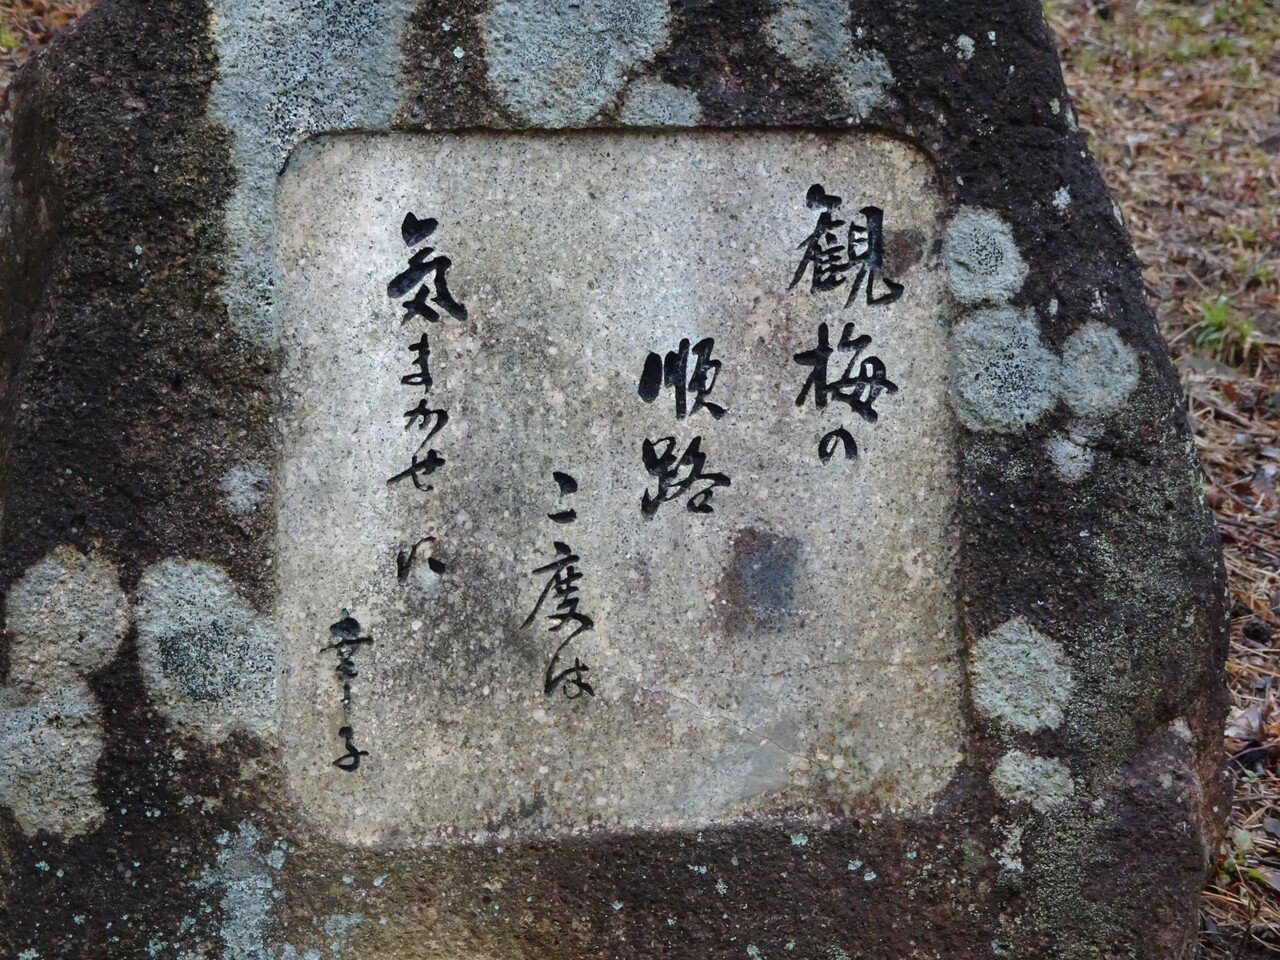 観梅の
順路
こ度は
気まかせに
幸子